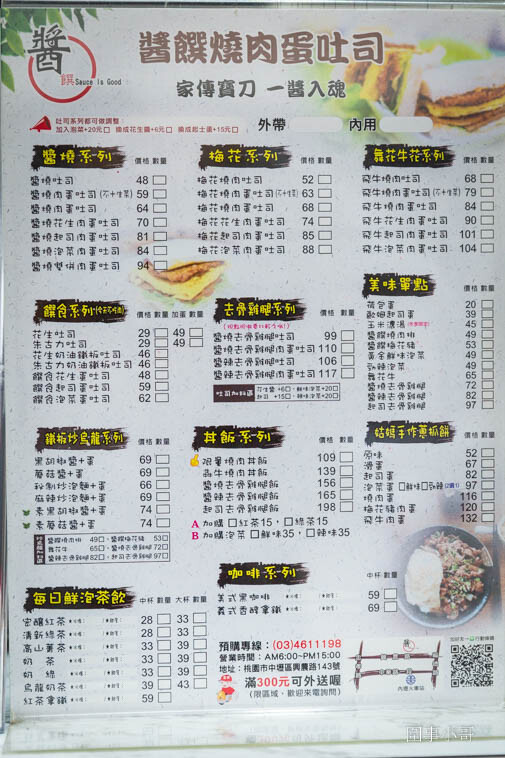 醬
饌 Sauce Is Good
醬饌燒肉蛋吐司
家傳寶刀 一醬入魂
吐司系列都可做調整
加入泡菜+20元□ 換成花生醬+6元□ 換成起士蛋+15元□
外帶 內用
醬燒系列 價格 數量
醬燒吐司 48
醬燒肉蛋吐司(不+生菜) 59
醬燒肉蛋吐司 64
醬燒花生肉蛋吐司 70
醬燒起司肉蛋吐司 81
醬燒泡菜肉蛋吐司 84
醬燒雙併肉蛋吐司 94
梅花系列 價格 數量
梅花燒肉吐司 52
梅花燒肉蛋吐司(不+生菜) 63
梅花燒肉蛋吐司 68
梅花花生肉蛋吐司 74
梅花起司肉蛋吐司 85
梅花泡菜肉蛋吐司 88
舞花牛花系列 價格 數量
飛牛燒肉吐司 68
飛牛燒肉蛋吐司(不+生菜) 79
飛牛燒肉蛋吐司 84
飛牛花生肉蛋吐司 90
飛牛起司肉蛋吐司 101
飛牛泡菜肉蛋吐司 104
饌食系列 價格 數量 加蛋 數量
花生吐司 29 49
朱古力吐司 29 49
花生奶油鐵板吐司 46
朱古力奶油鐵板吐司 46
饌食花生蛋吐司 48
饌食起司蛋吐司 59
饌食泡菜吐司 62
去骨雞腿系列 價格 數量
醬燒去骨雞腿吐司 99
醬燒去骨雞腿肉蛋吐司 110
醬辣去骨雞腿吐司 106
醬辣去骨雞腿肉蛋吐司 117
吐司加料區 花生醬 +6□、鮮味泡菜+20□
起司 +15□、辣味泡菜+20□
美味單點 價格 數量
荷包蛋 20
歐姆起司蛋 39
玉米濃湯 45
醬饌燒肉排 49
醬饌梅花豬 53
黃金鮮味泡菜 49
勁辣泡菜 49
舞花牛 65
醬燒去骨雞腿 72
醬辣去骨雞腿 82
起司去骨雞腿 97
鐵板炒烏龍系列 價格 數量
黑胡椒醬+蛋 69
蘑菇醬+蛋 69
秘制炒泡麵+蛋 66
麻辣炒泡麵+蛋 69
素黑胡椒醬+蛋 74
素蘑菇醬+蛋 74
醬饌燒肉排 49□、醬饌梅花豬 53□
舞花牛 65□、醬燒去骨雞腿72□
醬辣去骨雞腿82□、起司去骨雞腿97□
丼飯系列 價格 數量
限量燒肉丼飯 109
犇牛燒肉丼飯 139
醬燒去骨雞腿飯 156
醬辣去骨雞腿飯 165
起司去骨雞腿飯 198
A 加購 □紅茶15，□綠茶15
B 加購泡菜 □鮮味35，□辣味35
姑媽手作蔥抓餅 價格 數量
原味 52
滑蛋 67
起司蛋 82
泡菜蛋 □鮮味□勁辣(2選1) 97
燒肉蛋 116
梅花豬肉蛋 120
飛牛肉蛋 132
咖啡系列 中杯 數量
美式黑咖啡 59
義式香醇拿鐵 69
每日鮮泡茶飲 中杯 數量 大杯 數量
蜜釀紅茶 28 33
清新綠茶 28 33
高山薰茶 33 39
奶 茶 33 39
奶 綠 33 39
烏龍奶茶 39 43
紅茶拿鐵 59
預購專線：(03)4611198
營業時間：AM6:00~PM15:00
地址：桃園市中壢區興農路143號
滿300元可外送喔
(限區域、歡迎來電詢問)
內壢火車站
加好友→行動條碼
圍事小哥